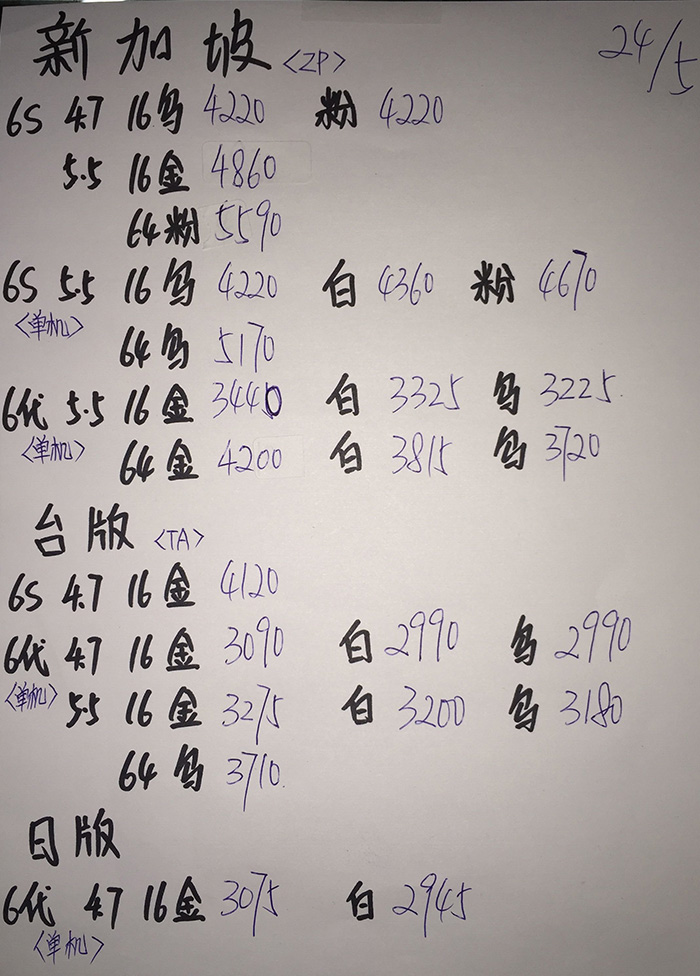 新加坡 <ZP> 24/5
6S 4.7 16乌 4220 粉 4220
5.5 16金 4860
64粉 5590
6S 5.5 16乌 4220 白 4360 粉 4670
<单机>
64乌 5170
6代 5.5 16金 3440 白 3325 乌 3225
<单机>
64金 4200 白 3815 乌 3720
台版 <TA>
6S 4.7 16金 4120
6代 4.7 16金 3090 白 2990 乌 2990
<单机>
5.5 16金 3275 白 3200 乌 3180
64乌 3710
日版
6代 4.7 16金 3075 白 2945
<单机>